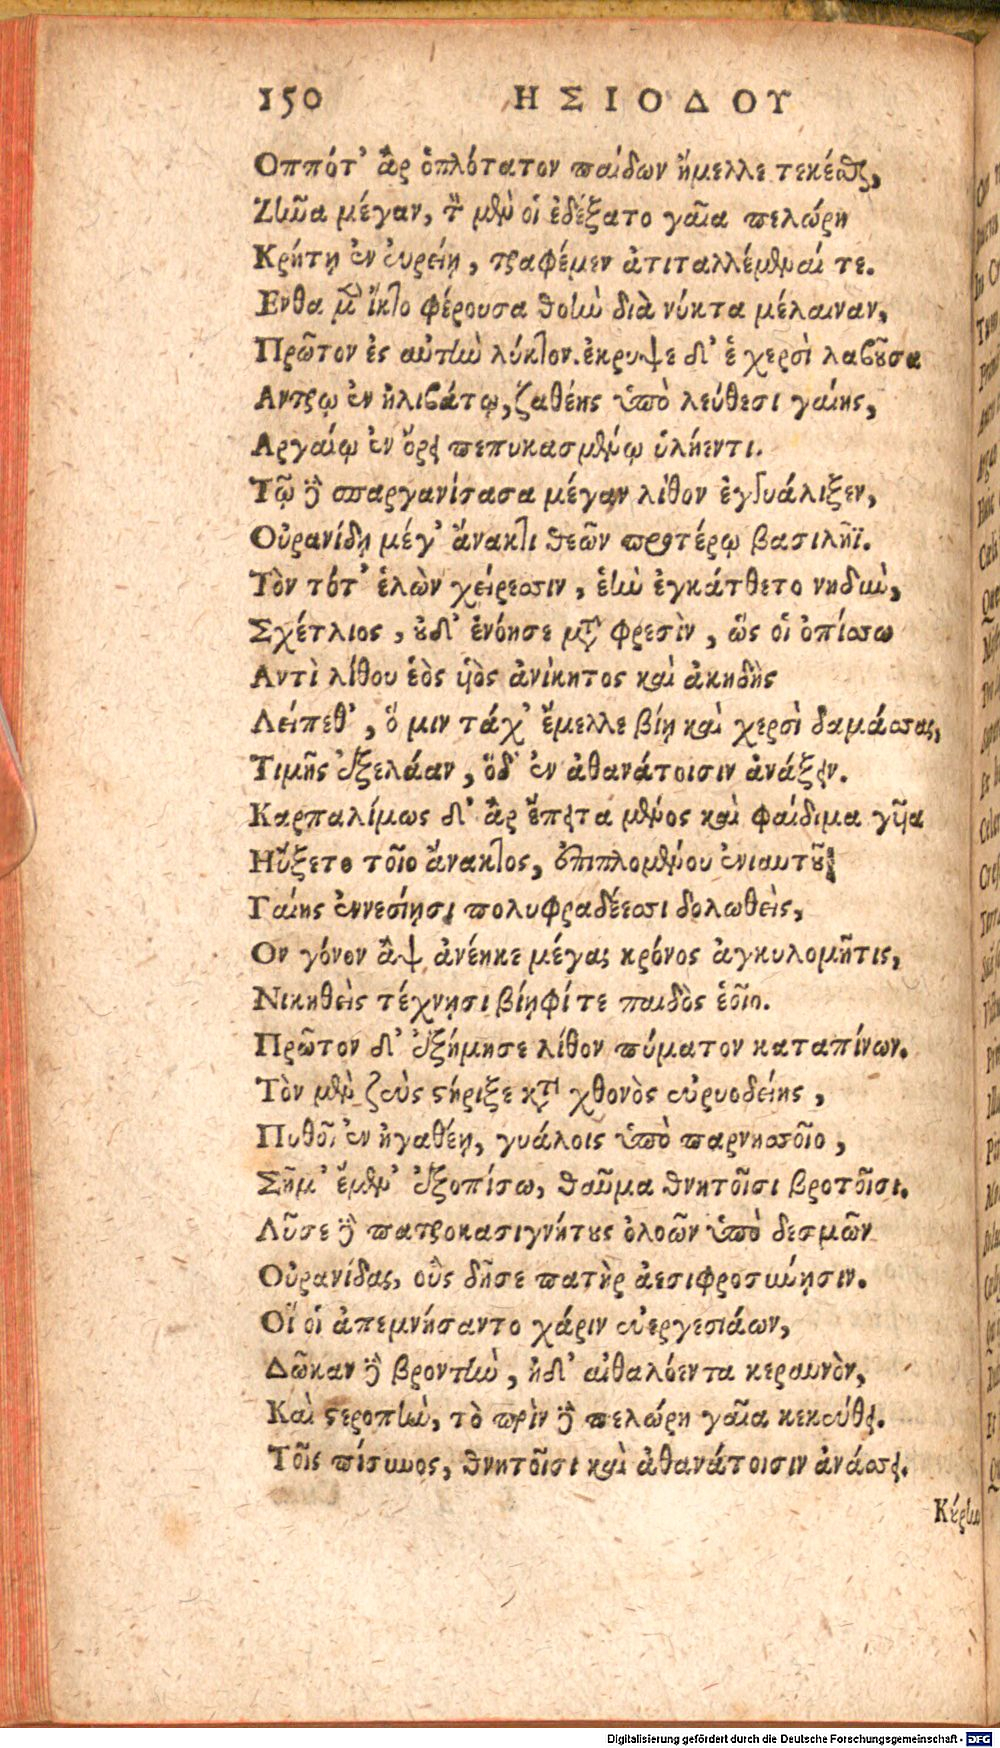 150 ΗΣΙΟΔΟΥ
Οππότ' ἂρ ὁπλότατον παίδων ἤμελλε τεκέσθαι,
Ζῆνα μέγαν, τὸν μὲν οἱ ἐδέξατο γαῖα πελώρη
Κρήτῃ ἐν εὐρείῃ, τραφέμεν ἀτιταλλέμεναί τε.
Ενθα μιν ἵκτο φέρουσα θοὴν διὰ νύκτα μέλαιναν,
Πρῶτον ἐς αὐτὴν λύκτον. ἐκρυψε δ' ἑ χερσὶ λαβοῦσα
Αντρῳ ἐν ἠλιβάτῳ, ζαθέης ὑπὸ λεύθεσι γαίης,
Αργαίῳ ἐν ὄρει πεπυκασμένῳ ὑλήεντι.
Τῷ δὲ σπαργανίσασα μέγαν λίθον ἐγγυάλιξεν,
Οὐρανίδῃ μέγ' ἄνακτι θεῶν προτέρῳ βασιλῆϊ.
Τὸν τότ' ἑλὼν χείρεσσιν, ἑὴν ἐγκάτθετο νηδὺν,
Σχέτλιος, οὐδ' ἐνόησε μετὰ φρεσὶν, ὥς οἱ ὀπίσσω
Αντὶ λίθου ἑὸς υἱὸς ἀνίκητος καὶ ἀκηδὴς
Λείπεθ', ὅ μιν τάχ' ἔμελλε βίῃ καὶ χερσὶ δαμάσσας,
Τιμῆς ἐξελάαν, ὅδ' ἐν ἀθανάτοισιν ἀνάξειν.
Καρπαλίμως δ' ἂρ ἔπειτα μένος καὶ φαίδιμα γυῖα
Ηὔξετο τοῖο ἄνακτος, ἐπιπλομένου ἐνιαυτοῦ
Γαίης ἐννεσίῃσι πολυφραδέεσσι δολωθεὶς,
Ον γόνον ἂψ ἀνέηκε μέγας κρόνος ἀγκυλομῆτις,
Νικηθεὶς τέχνῃσι βίῃφί τε παιδὸς ἑοῖο.
Πρῶτον δ' ἐξήμησε λίθον πύματον καταπίνων.
Τὸν μὲν ζεὺς στήριξε κατὰ χθονὸς εὐρυοδείης,
Πυθοῖ ἐν ἠγαθέῃ, γυάλοις ὑπὸ παρνησσοῖο,
Σῆμ' ἔμεν' ἐξοπίσω, θαῦμα θνητοῖσι βροτοῖσι.
Λῦσε δὲ πατροκασιγνήτους ὀλοῶν ὑπὸ δεσμῶν
Οὐρανίδας, οὓς δῆσε πατὴρ ἀεσιφροσύνῃσιν.
Οἵ οἱ ἀπεμνήσαντο χάριν εὐεργεσιάων,
Δῶκαν δὲ βροντὴν, ἠδ' αἰθαλόεντα κεραυνὸν,
Καὶ στεροπὴν, τὸ πρὶν δὲ πελώρη γαῖα κεκεύθει.
Τοῖς πίσυνος, θνητοῖσι καὶ ἀθανάτοισιν ἀνάσσει.
Κούρην
Digitalisierung gefördert durch die Deutsche Forschungsgemeinschaft - DFG